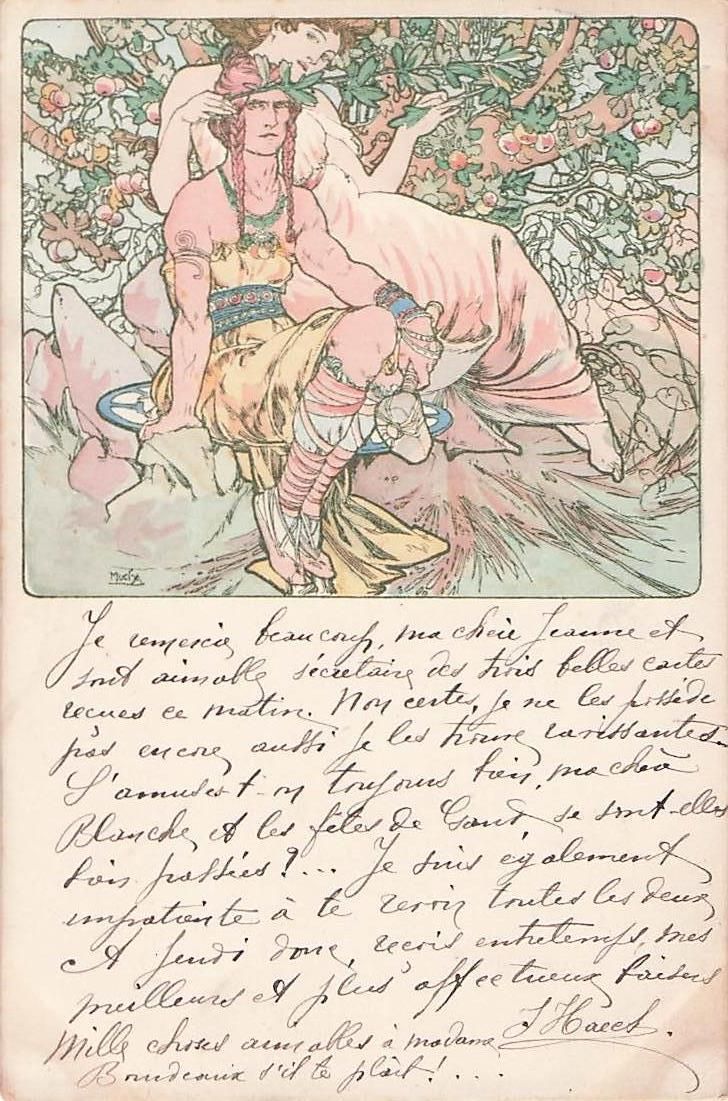 Mucha
Je remercie beaucoup, ma chère Jeanne et
sont aimable secrétaire des trois belles cartes
reçues ce matin. Non certes, je ne les possède
pas encore, aussi je les trouve ravissantes.
S'amuse-t-on toujours bien, ma chère
Blanche, et les fêtes de Gand se sont-elles
bien passées ?... Je suis également
impatiente à te revoir toutes les deux,
A jeudi donc, reçois entretemps, mes
meilleurs et plus affectueux baisers
J Haeck.
Mille choses aimables à madame
Bourdeaux s'il te plaît! ...